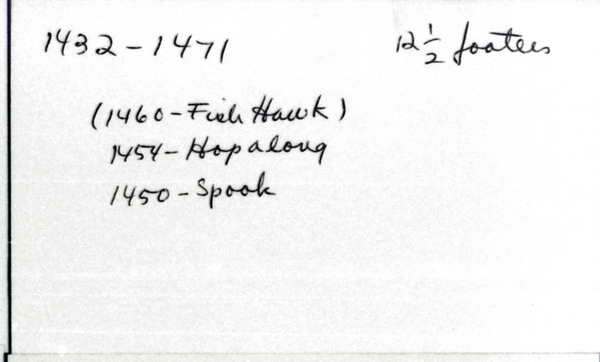 1432-1471 12 1/2 footers
(1460-Fish Hawk)
1454-Hopalong
1450-Spook